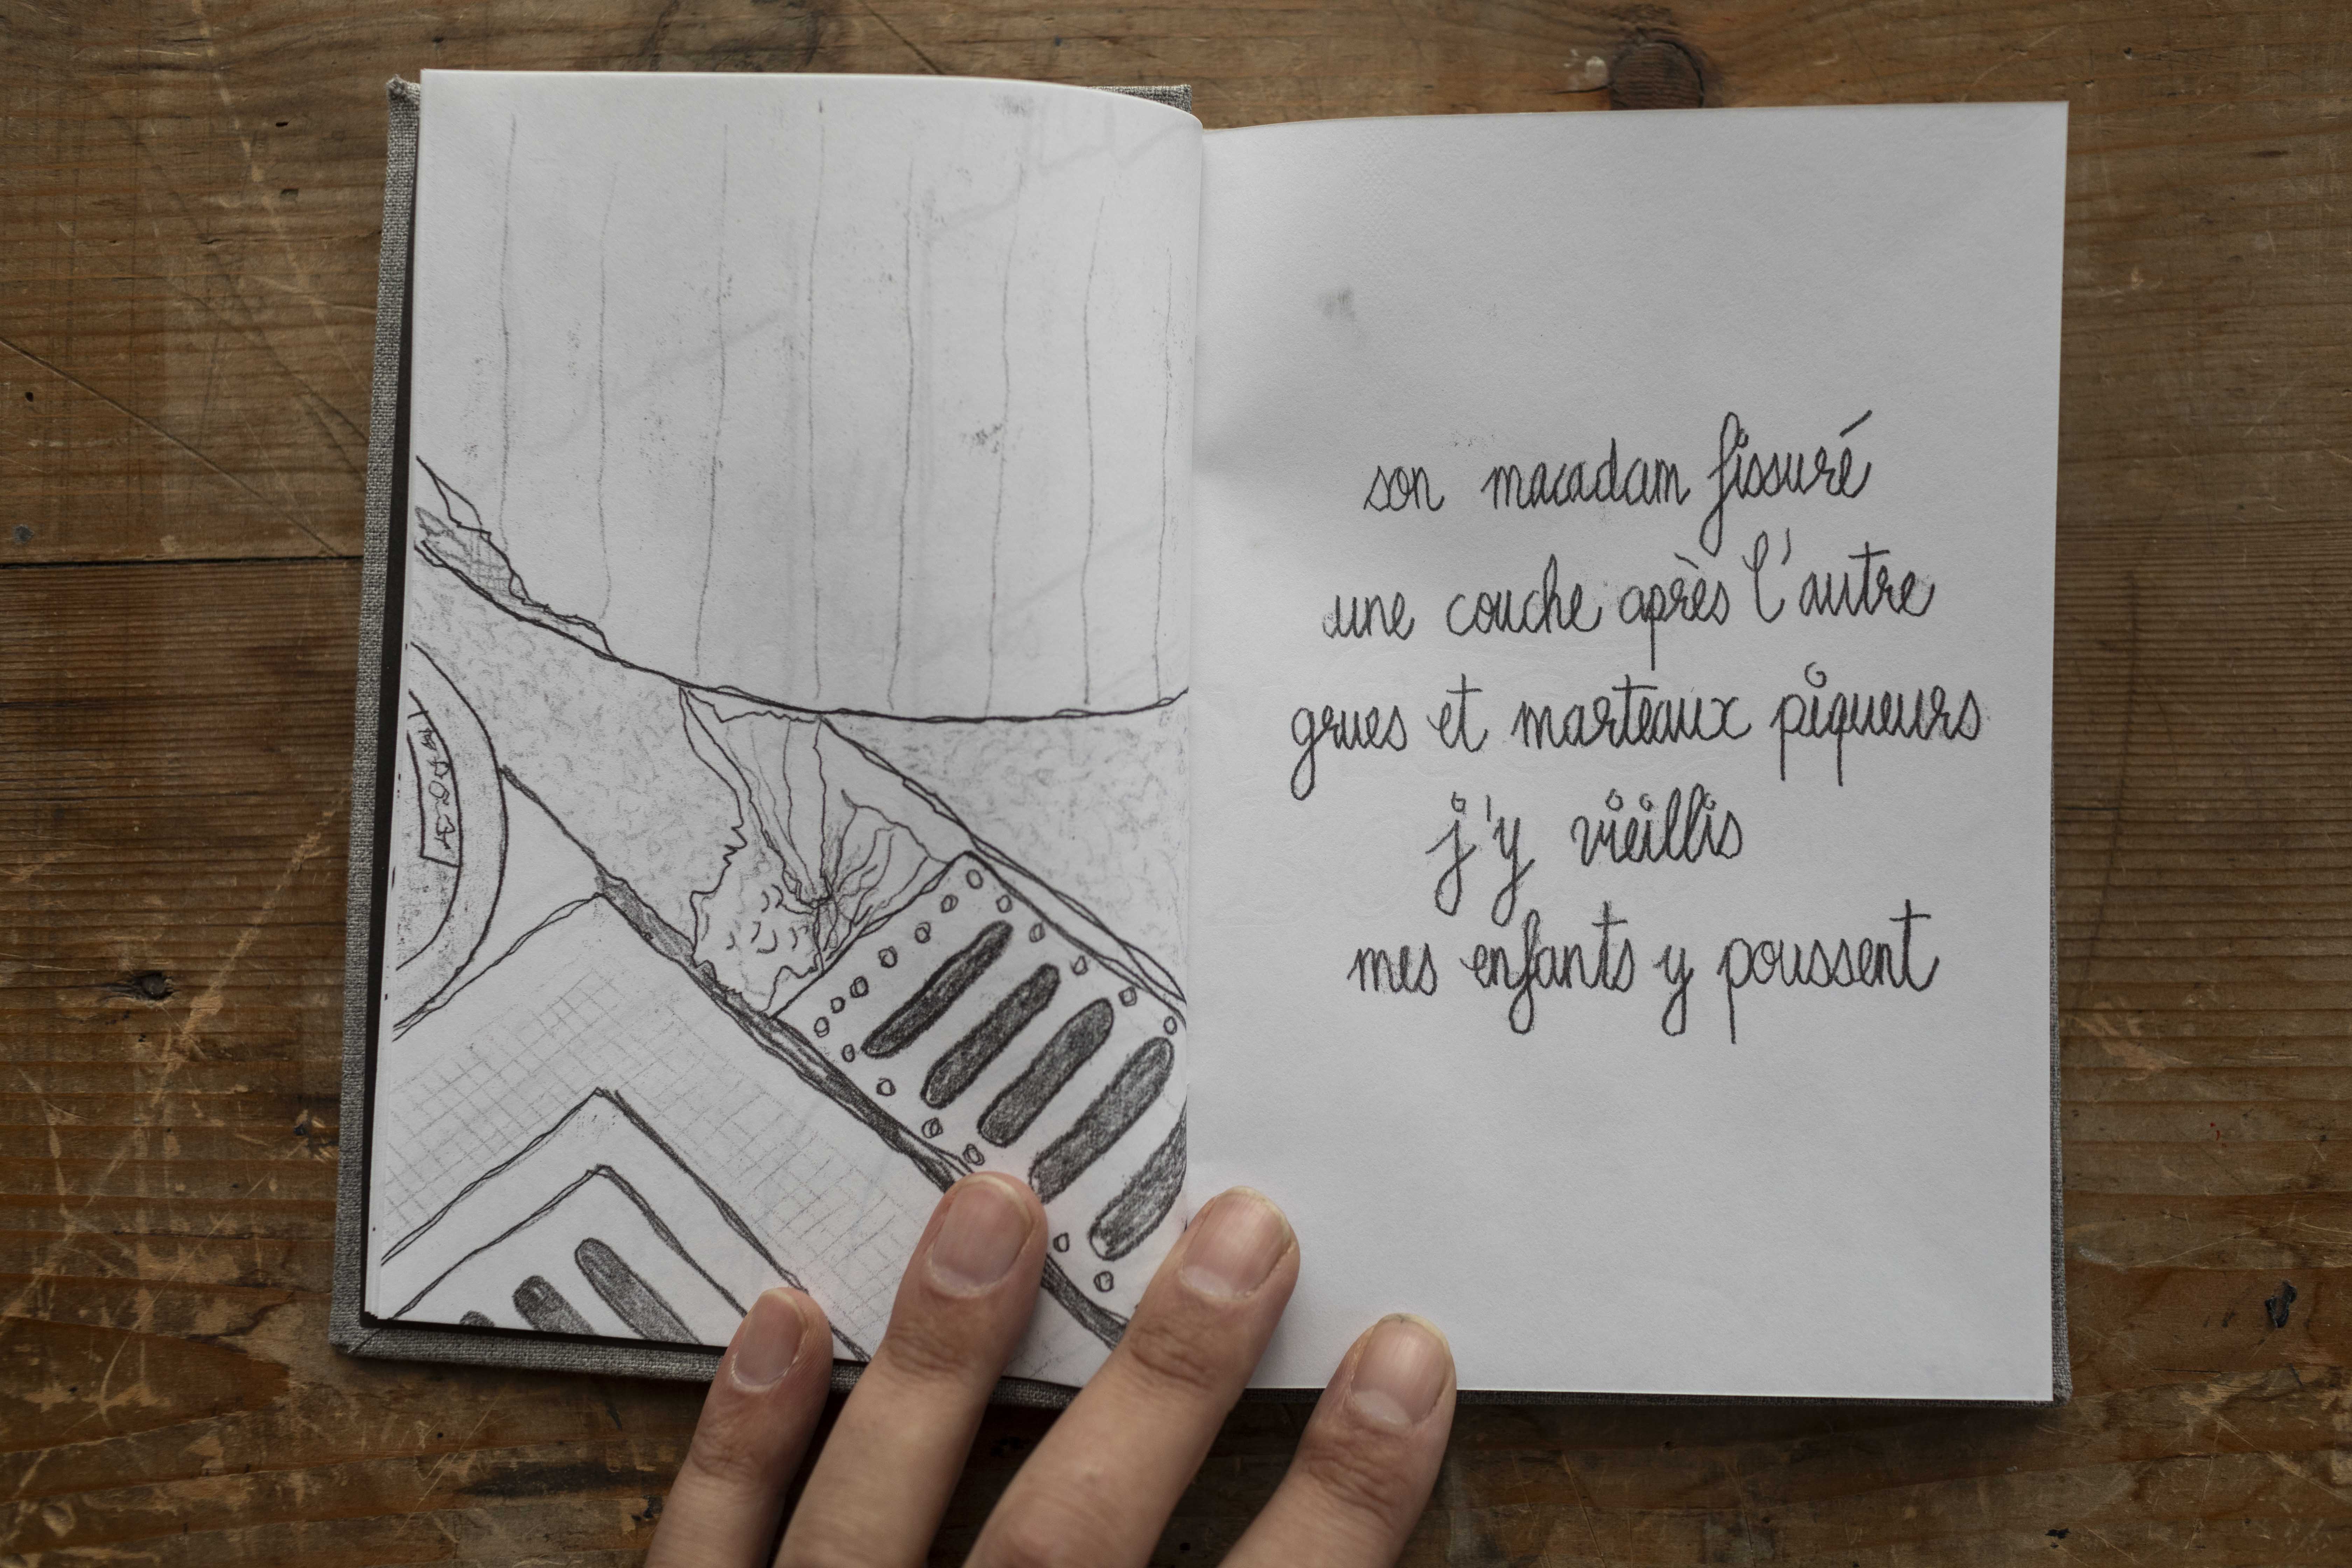 son macadam fissuré
une couche après l'autre
grues et marteaux piqueurs
j'y vieillis
mes enfants y poussent